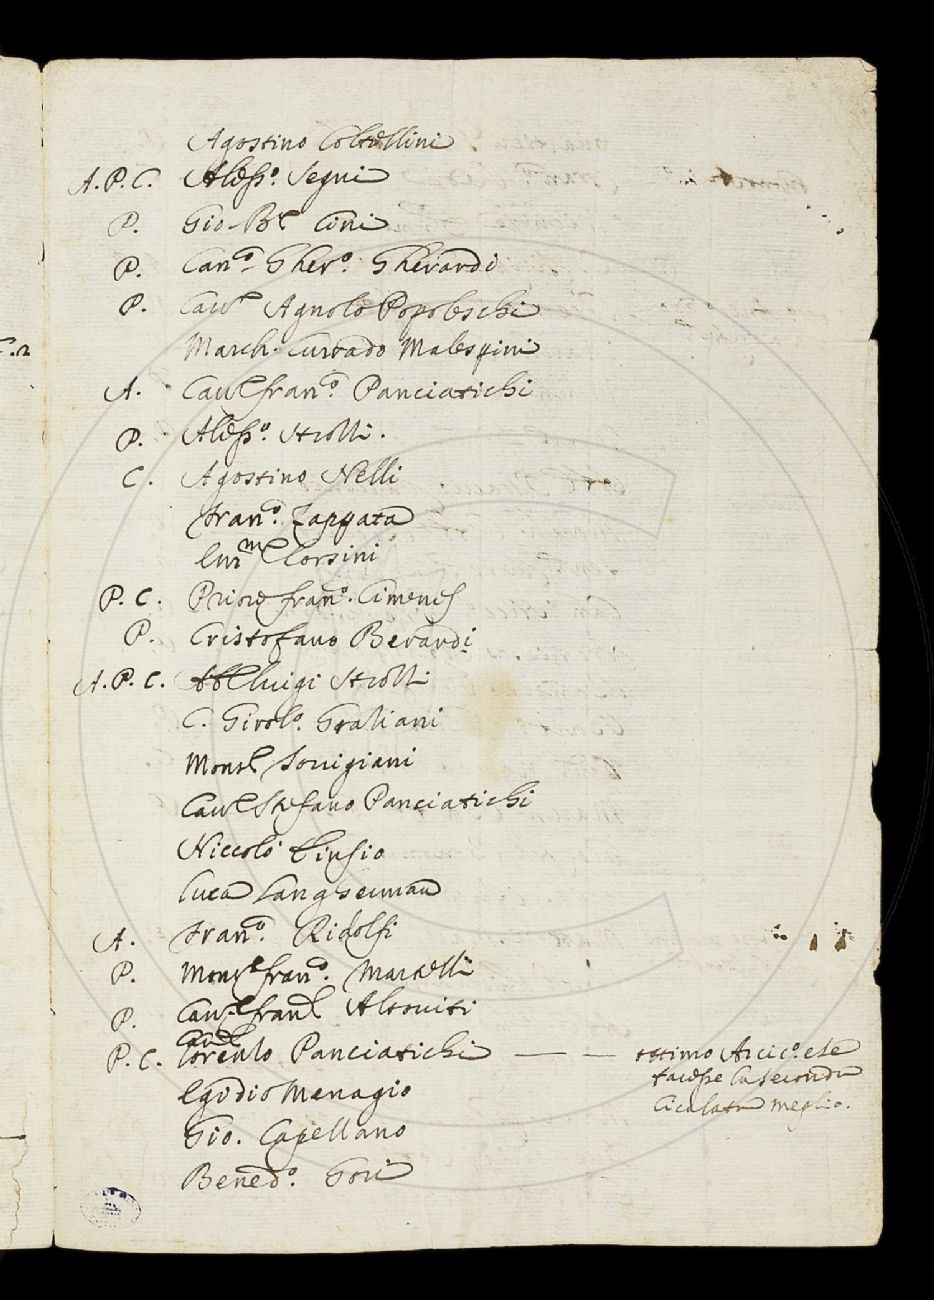 Agostino Coltellini
A. P. C. Aless.º Segni
P. Gio. B.ª Cini
P. Can.º Gher.º Gherardi
P. Cav.e Agnolo Popoleschi
March. Currado Malespini
A. Cav.e Fran.º Panciatichi
P. Aless.º Strozzi.
C. Agostino Nelli
Fran.º Zappata
Corsini
P. C. Priore Fran.º Cimenes
P. Cristofano Berardi
A. P. C. Ab.e Luigi Strozzi
C. Girol.º Graziani
Mons.e
Cav.e Stefano Panciatichi
Niccolò Einsio
Luca Langserman
A. Fran.º Ridolfi
P. Mons.e Fran.º
P. Cav.e Fran.º Altoviti
Cav.e
P. C. Lorenzo Panciatichi — — ottimo Arcic.º e se
facesse la seconda
Cicalata meglio.
Egidio Menagio
Gio. Capellano
Bened.º Gori